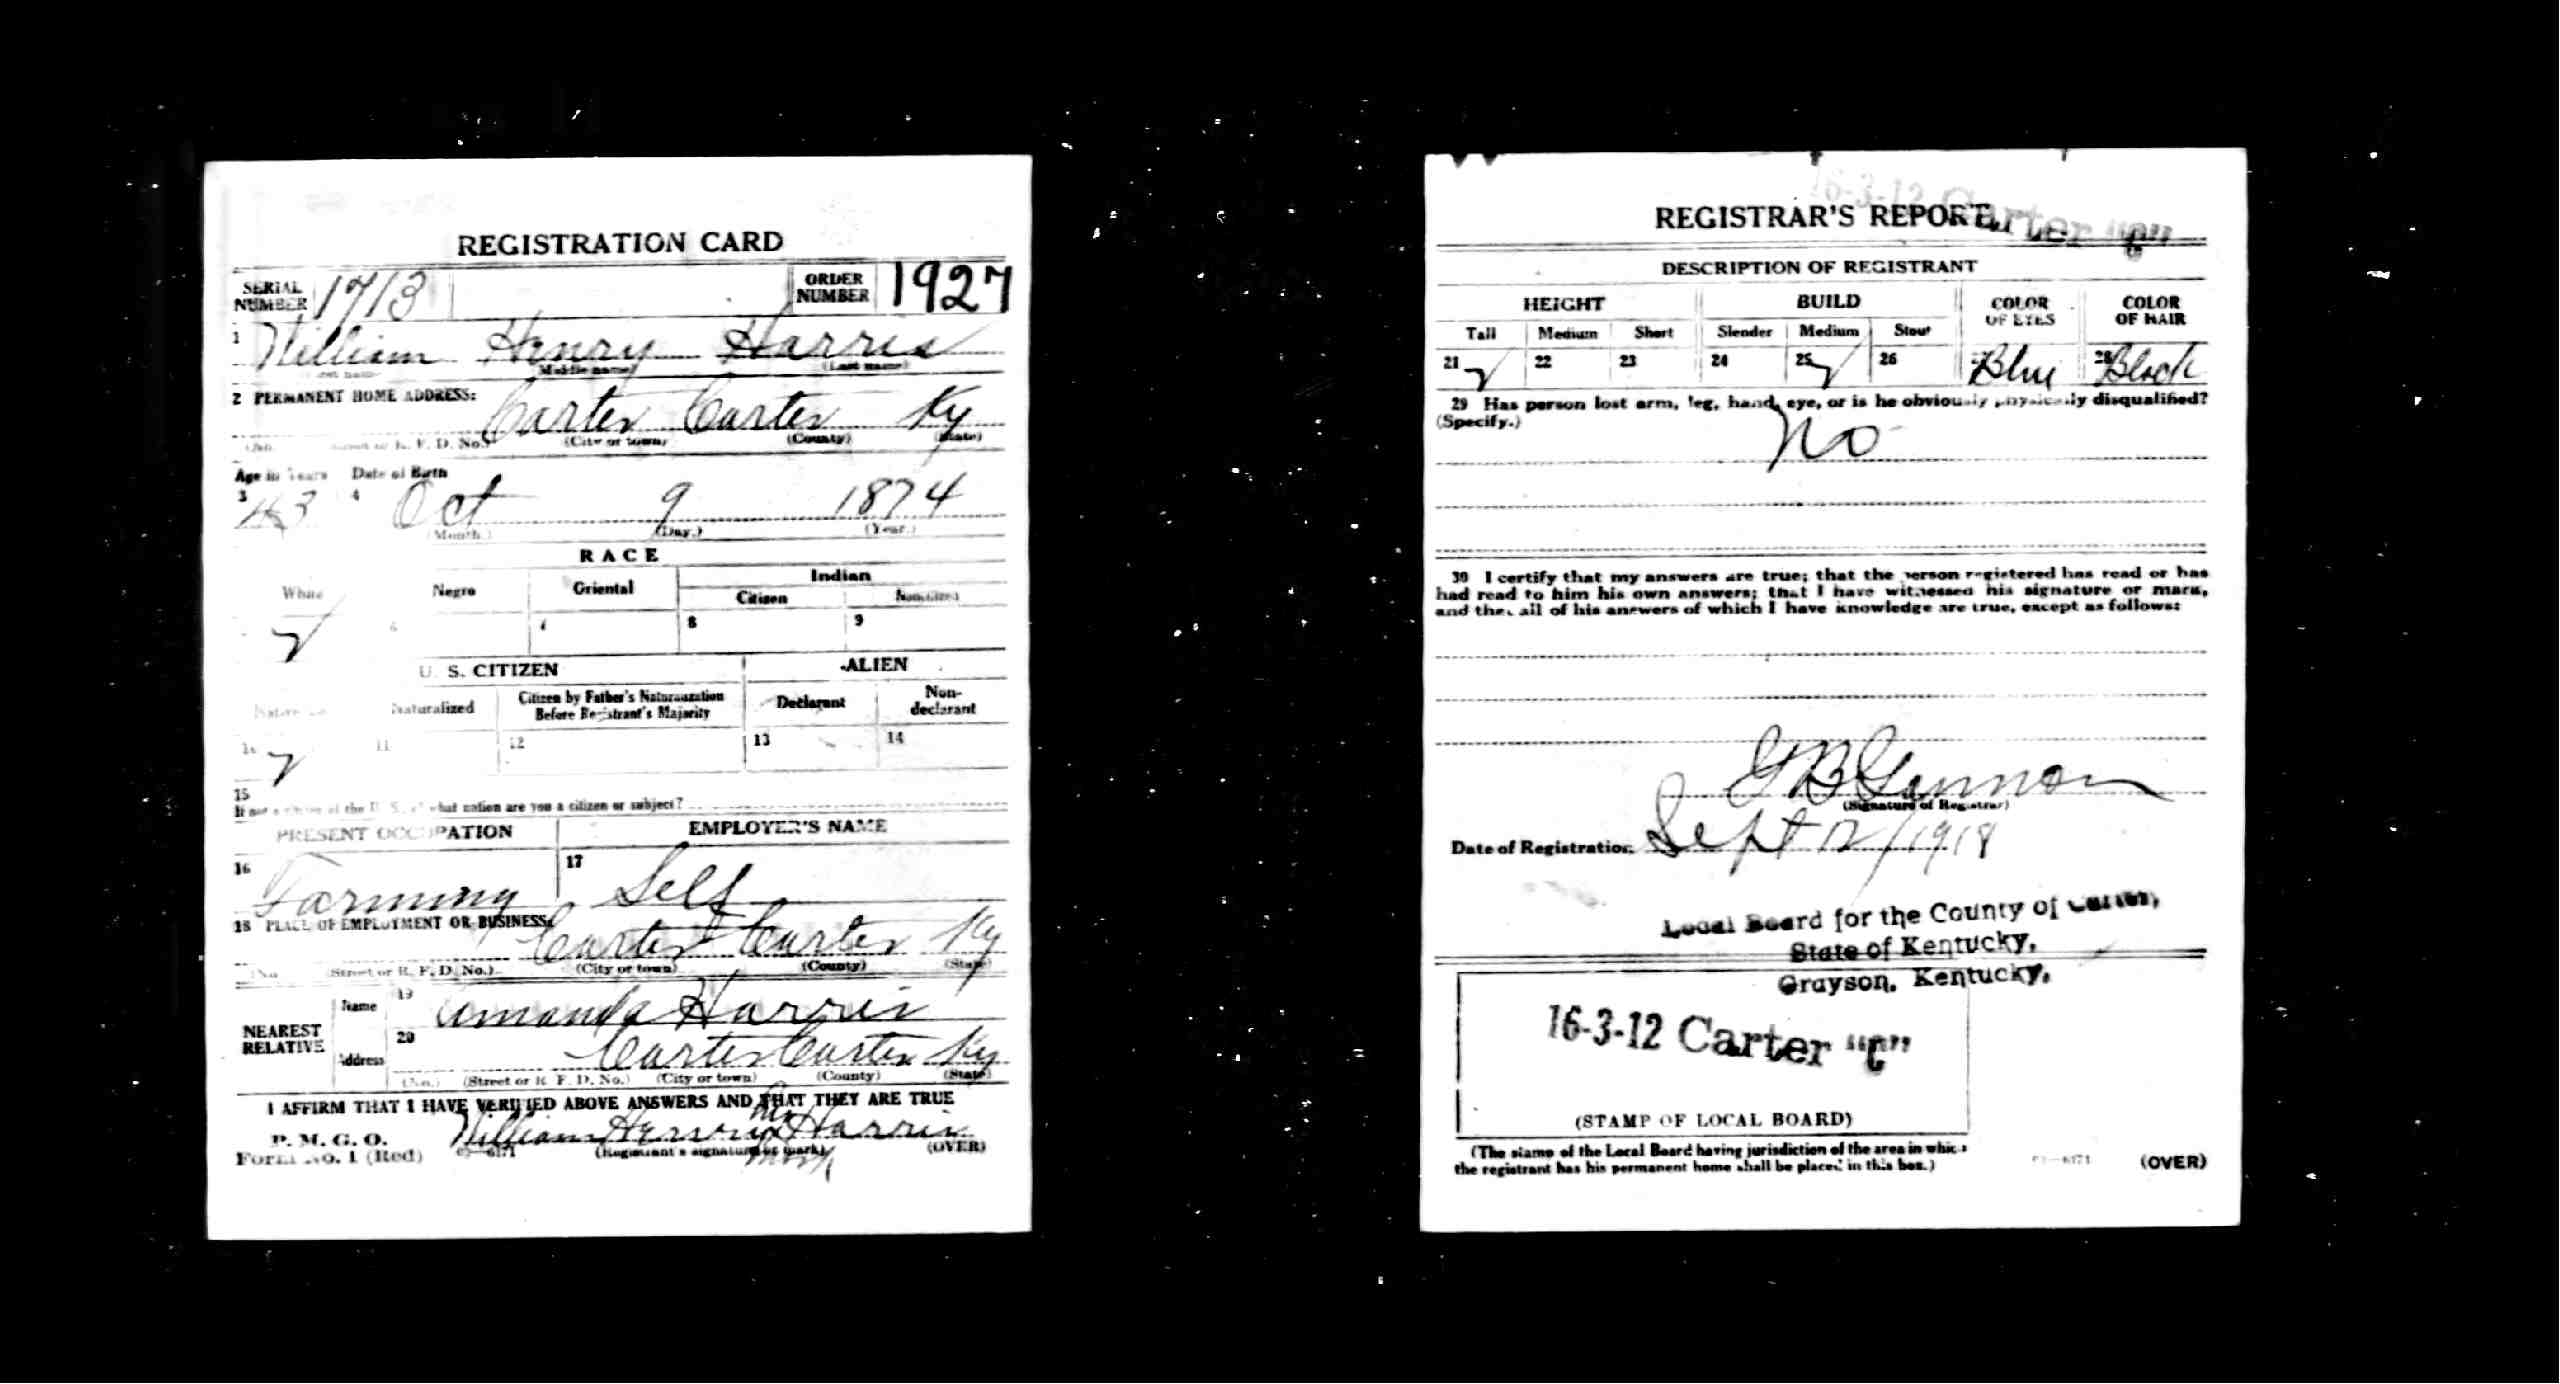 REGISTRATION CARD
SERIAL NUMBER 1713 ORDER NUMBER 1927
1 William Henry Harris
(Middle name) (Last name)
2 PERMANENT HOME ADDRESS: Carter Carter Ky
R. F. D. No. (City or town) (County) (State)
Age in Years Date of Birth
3 43 4 Oct 9 1874
(Month.) (Day.) (Year.)
RACE
White Negro Oriental Indian
Citizen Noncitizen
8 9
U. S. CITIZEN ALIEN
Naturalized Citizen by Father's Naturalization Before Registrant's Majority Declarant Non-declarant
10 11 12 13 14
15
If not a citizen of the U. S., of what nation are you a citizen or subject?
PRESENT OCCUPATION EMPLOYER'S NAME
16 Farming 17 Self
18 PLACE OF EMPLOYMENT OR BUSINESS: Carter Carter Ky
(No.) (Street or R. F. D. No.) (City or town) (County) (State)
NEAREST RELATIVE Name 19 Amanda Harris
Address 20 Carter Carter Ky
(No.) (Street or R. F. D. No.) (City or town) (County) (State)
I AFFIRM THAT I HAVE VERIFIED ABOVE ANSWERS AND THAT THEY ARE TRUE
P. M. G. O.
Form No. 1 (Red) William Henry his x mark Harris
(Registrant's signature or mark) (OVER)
REGISTRAR'S REPORT
16-3-12 Carter "C"
DESCRIPTION OF REGISTRANT
HEIGHT BUILD COLOR OF EYES COLOR OF HAIR
Tall Medium Short Slender Medium Stout
21 22 23 24 25 26 27 Blue 28 Black
29 Has person lost arm, leg, hand, eye, or is he obviously physically disqualified?
(Specify.) No
30 I certify that my answers are true; that the person registered has read or has
had read to him his own answers; that I have witnessed his signature or mark,
and that all of his answers of which I have knowledge are true, except as follows:
G B Gannon
(Signature of Registrar)
Date of Registration Sept 12/1918
Local Board for the County of Carter,
State of Kentucky,
Grayson, Kentucky,
16-3-12 Carter "C"
(STAMP OF LOCAL BOARD)
(The stamp of the Local Board having jurisdiction of the area in which
the registrant has his permanent home shall be placed in this box.)
(OVER)